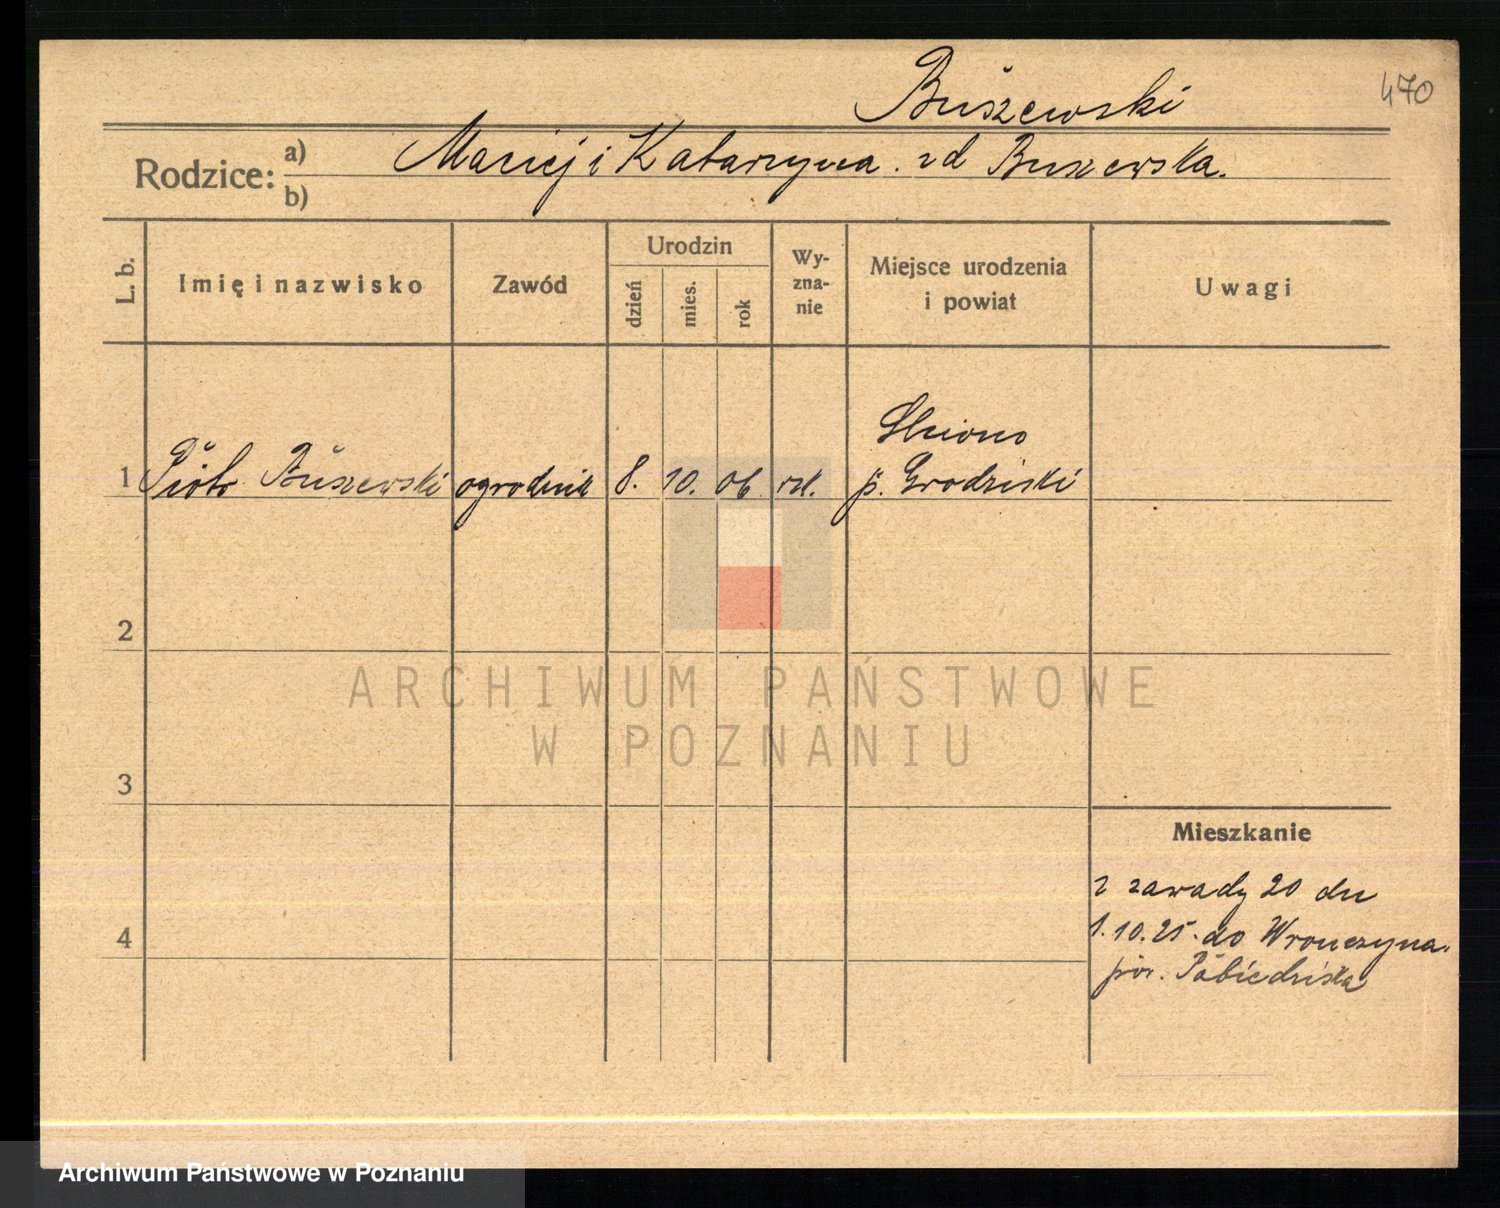 Buszewski
470
Rodzice: a)
b)
Maciej i Katarzyna. zd Buszewska.
L. b.
Imię i nazwisko
Zawód
Urodzin
dzień
mies.
rok
Wy-
zna-
nie
Miejsce urodzenia
i powiat
Uwagi
1 Piotr Buszewski ogrodnik 8. 10. 06 rzk.
p. Grodziski
2
3
4
Mieszkanie
z zawady 20 dn
1.10.25. do Wronczyna.
pow. Pobiedziska
ARCHIWUM PAŃSTWOWE
W POZNANIU
Archiwum Państwowe w Poznaniu